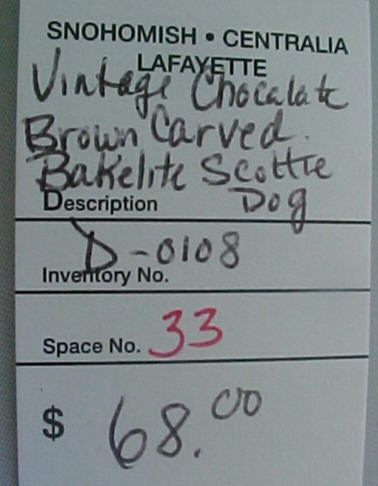 SNOHOMISH • CENTRALIA
LAFAYETTE
Vintage Chocalate
Brown Carved.
Bakelite Scottie
Description Dog
D-0108
Inventory No.
Space No. 33
$ 68.00